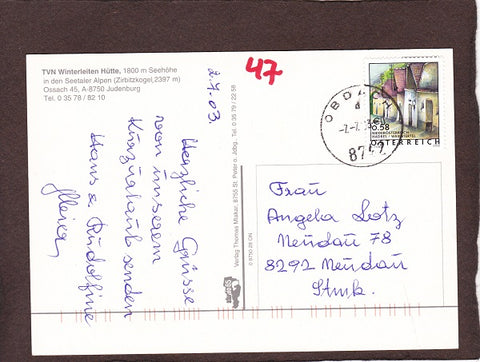 TVN Winterleiten Hütte, 1800 m Seehöhe
in den Seetaler Alpen (Zirbitzkogel 2397 m)
Ossach 45, A-8750 Judenburg
Tel. 0 35 78 / 82 10
47
2.7.03.
Herzliche Grüsse
von unserem
Kurzurlaub senden
Hans u. Rudolfine
Verlag Thomas Miskar, 8755 St. Peter o. Jdbg., Tel. 0 35 79 / 22 58
OBDACH
8742
0.58
ÖSTERREICH
Frau
Angela Lotz
Neudau 78
8292 Neudau
Stmk.